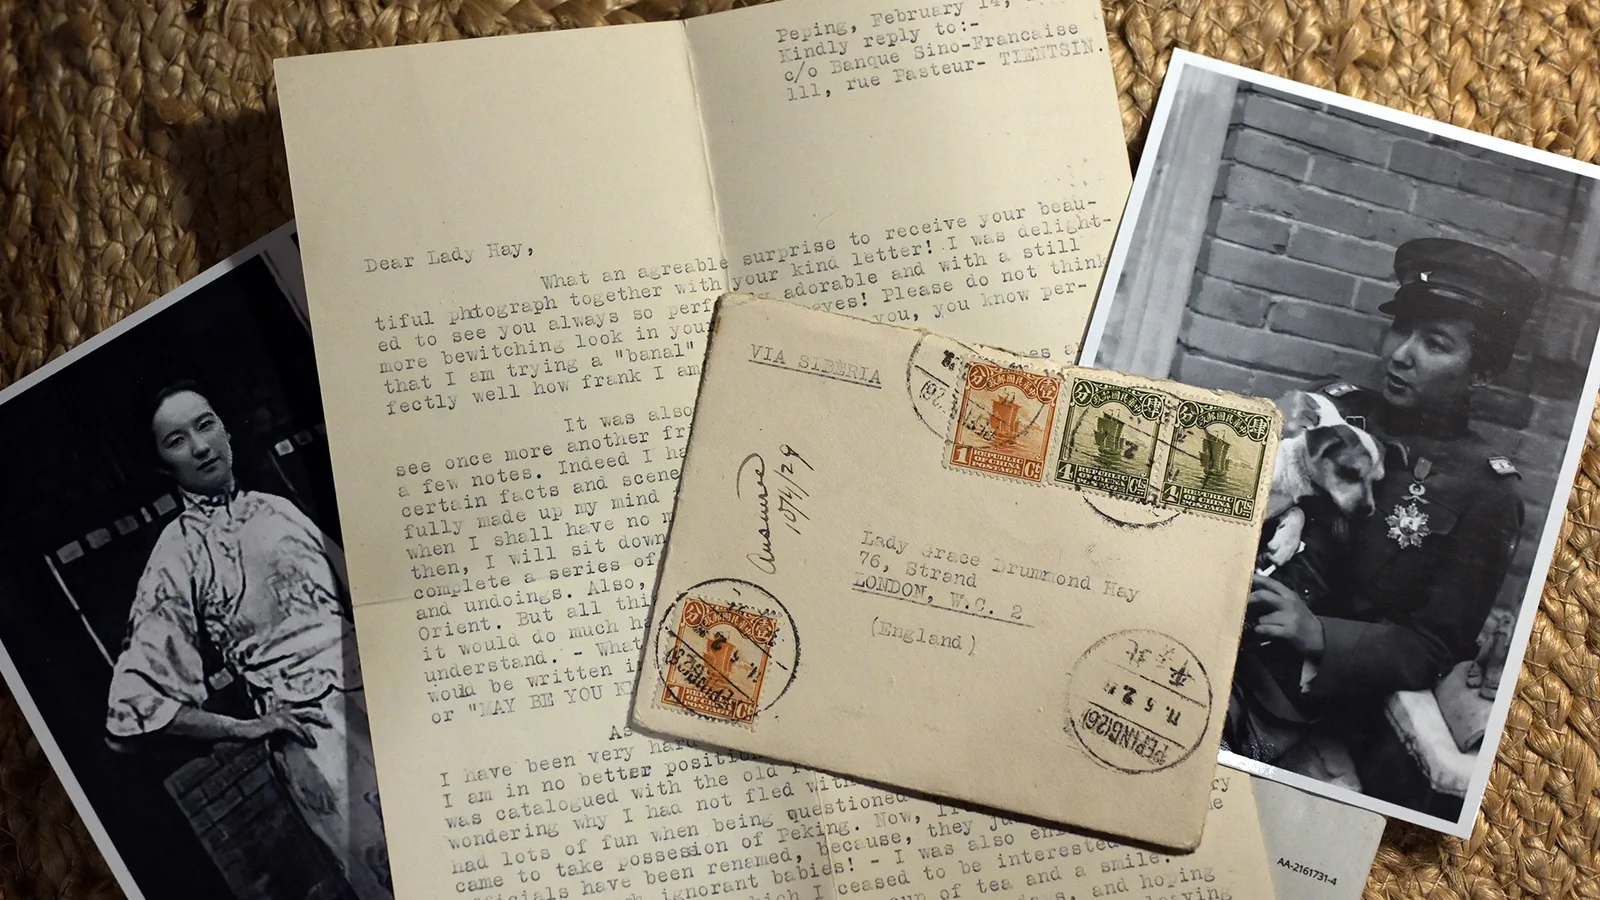 Peping, February 14,
Kindly reply to:-
c/o Banque Sino-Francaise
111, rue Pasteur- TIENTSIN.
Dear Lady Hay,
What an agreable surprise to receive your beau-
tiful phtograph together with your kind letter! I was delight-
ed to see you always so perf adorable and with a still
more bewitching look in your eyes! Please do not think
that I am trying a "banal" you, you know per-
fectly well how frank I am
It was also
see once more another fri
a few notes. Indeed I ha
certain facts and scene
fully made up my mind
when I shall have no m
then, I will sit down
complete a series of
and undoings. Also,
Orient. But all thi
it would do much ha
understand. - What
would be written i
or "MAY BE YOU K
As
I have been very hard
I am in no better positi
was catalogued with the old
wondering why I had not fled with
had lots of fun when being questioned
came to take possession of Peking. Now,
officials have been renamed, because, they
ignorant babies! - I was also
which I ceased to be interested
cup of tea and a smile.
and hoping
leaving
VIA SIBERIA
answered
10/4/29
Lady Grace Drummond Hay
76, Strand
LONDON, W.C. 2
(England)
中華民國郵政
壹 分
1 REPUBLIC OF CHINA POSTAGE Ct.
肆 分
4 REPUBLIC OF CHINA POSTAGE Cts.
肆 分
4 REPUBLIC OF CHINA POSTAGE Cts.
1 REPUBLIC OF CHINA POSTAGE Ct.
北平
11. 5 2
PEPING(26)
AA-2161731-4